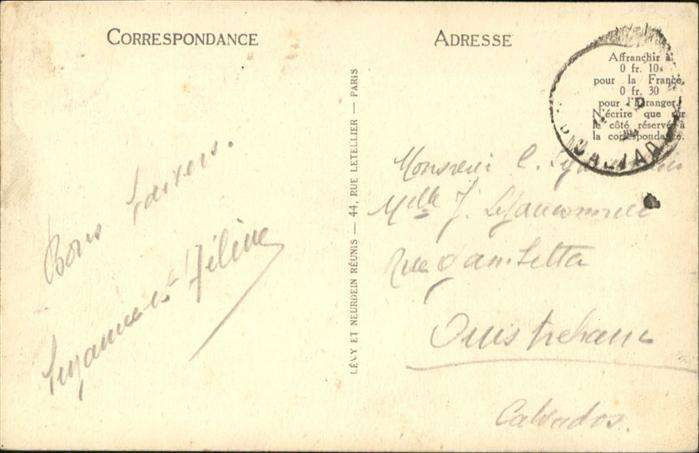 CORRESPONDANCE
Bons baisers.
Suzanne et Hélène
LÉVY ET NEURDEIN RÉUNIS — 44, RUE LETELLIER — PARIS
ADRESSE
Affranchir à
0 fr. 10s
pour la France,
0 fr. 30
pour l'étranger
N'écrire que sur
le côté réservé à
la correspondance.
Monsieur
Melle J.
Rue Gambetta
Ouistreham
Calvados.